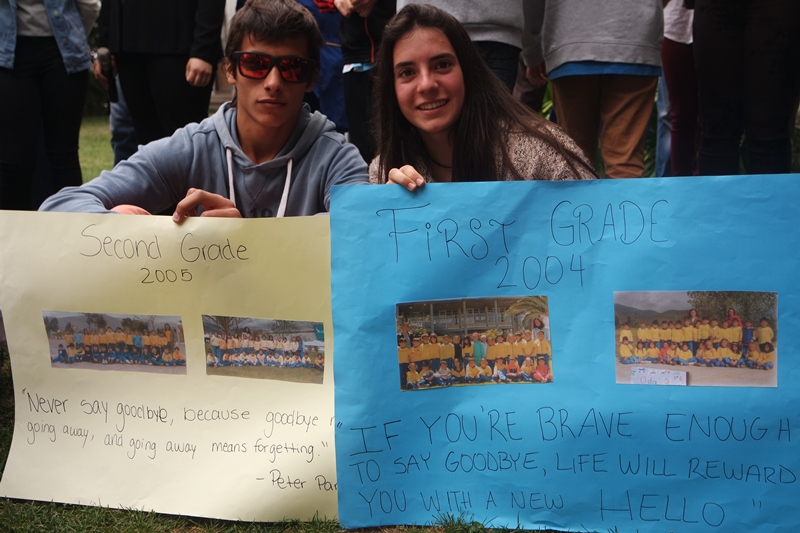 Second Grade
2005
"Never say goodbye, because goodbye
going away, and going away means forgetting."
- Peter Pan
FIRST GRADE
2004
"IF YOU'RE BRAVE ENOUGH
TO SAY GOODBYE, LIFE WILL REWARD
YOU WITH A NEW HELLO"